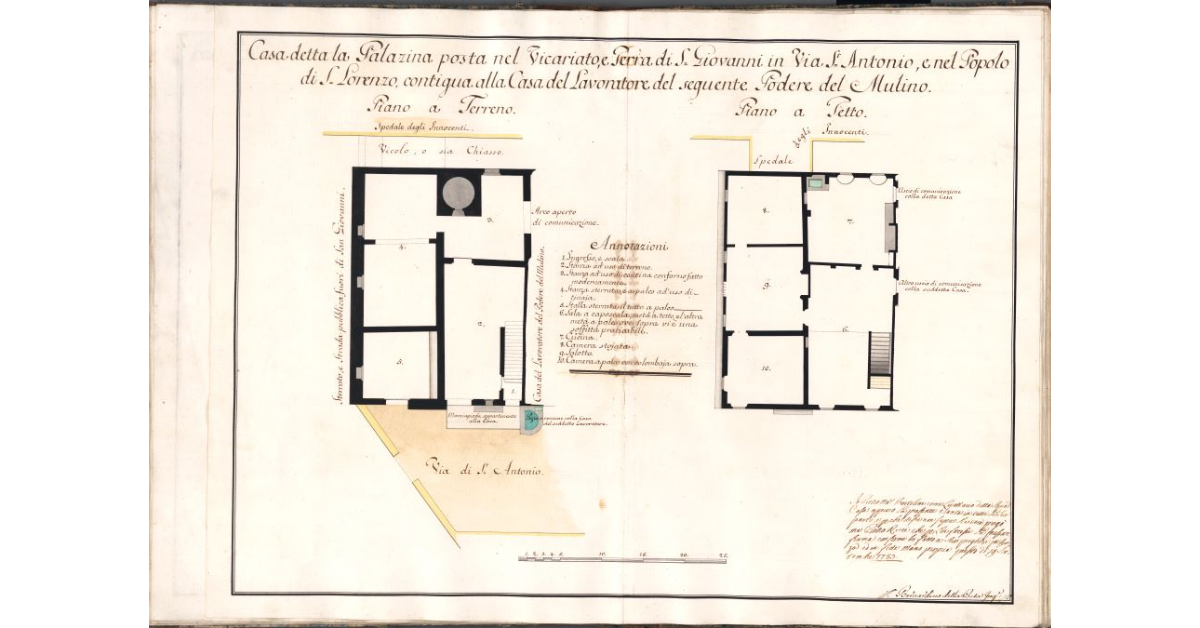 Casa detta la Palazina posta nel Vicariato, e Terra di S. Giovanni in Via St. Antonio, e nel Popolo
di S. Lorenzo, contigua alla Casa del Lavoratore del seguente Podere del Mulino.
Piano a Terreno.
Spedale degli Innocenti.
Vicolo, o sia Chiasso.
Sterrato, e Strada pubblica fuori di San Giovanni.
3.
4.
2.
5.
1.
Arco aperto
di comunicazione.
Casa del Lavoratore del Podere del Mulino.
Marciapiede appartenente
alla Casa.
comune colla Casa
del suddetto Lavoratore.
Via di S. Antonio.
Annotazioni
1. Ingresso, e scala
2. Stanza ad uso di terreno.
3. Stanza ad uso di cantina con forno fatto
modernamente.
4. Stanza sterrata, e a palco ad uso di
tinaia.
5. Stalla sterrata il tutto a palco
6. Sala a caposcala, metà a tetto, e l'altra
metà a palco ove sopra vi è una
soffitta praticabili.
7. Cucina.
8. Camera stojata.
9. Salotto.
10. Camera a palco con colombaja sopra.
Piano a Tetto.
Spedale
degli
Innocenti.
8.
7.
9.
6.
10.
Uscio di comunicazione
colla detta Casa
Altro uscio di comunicazione
colla suddetta Casa.
1. 2. 3. 4. 5. 10. 15. 20. 25.
1783